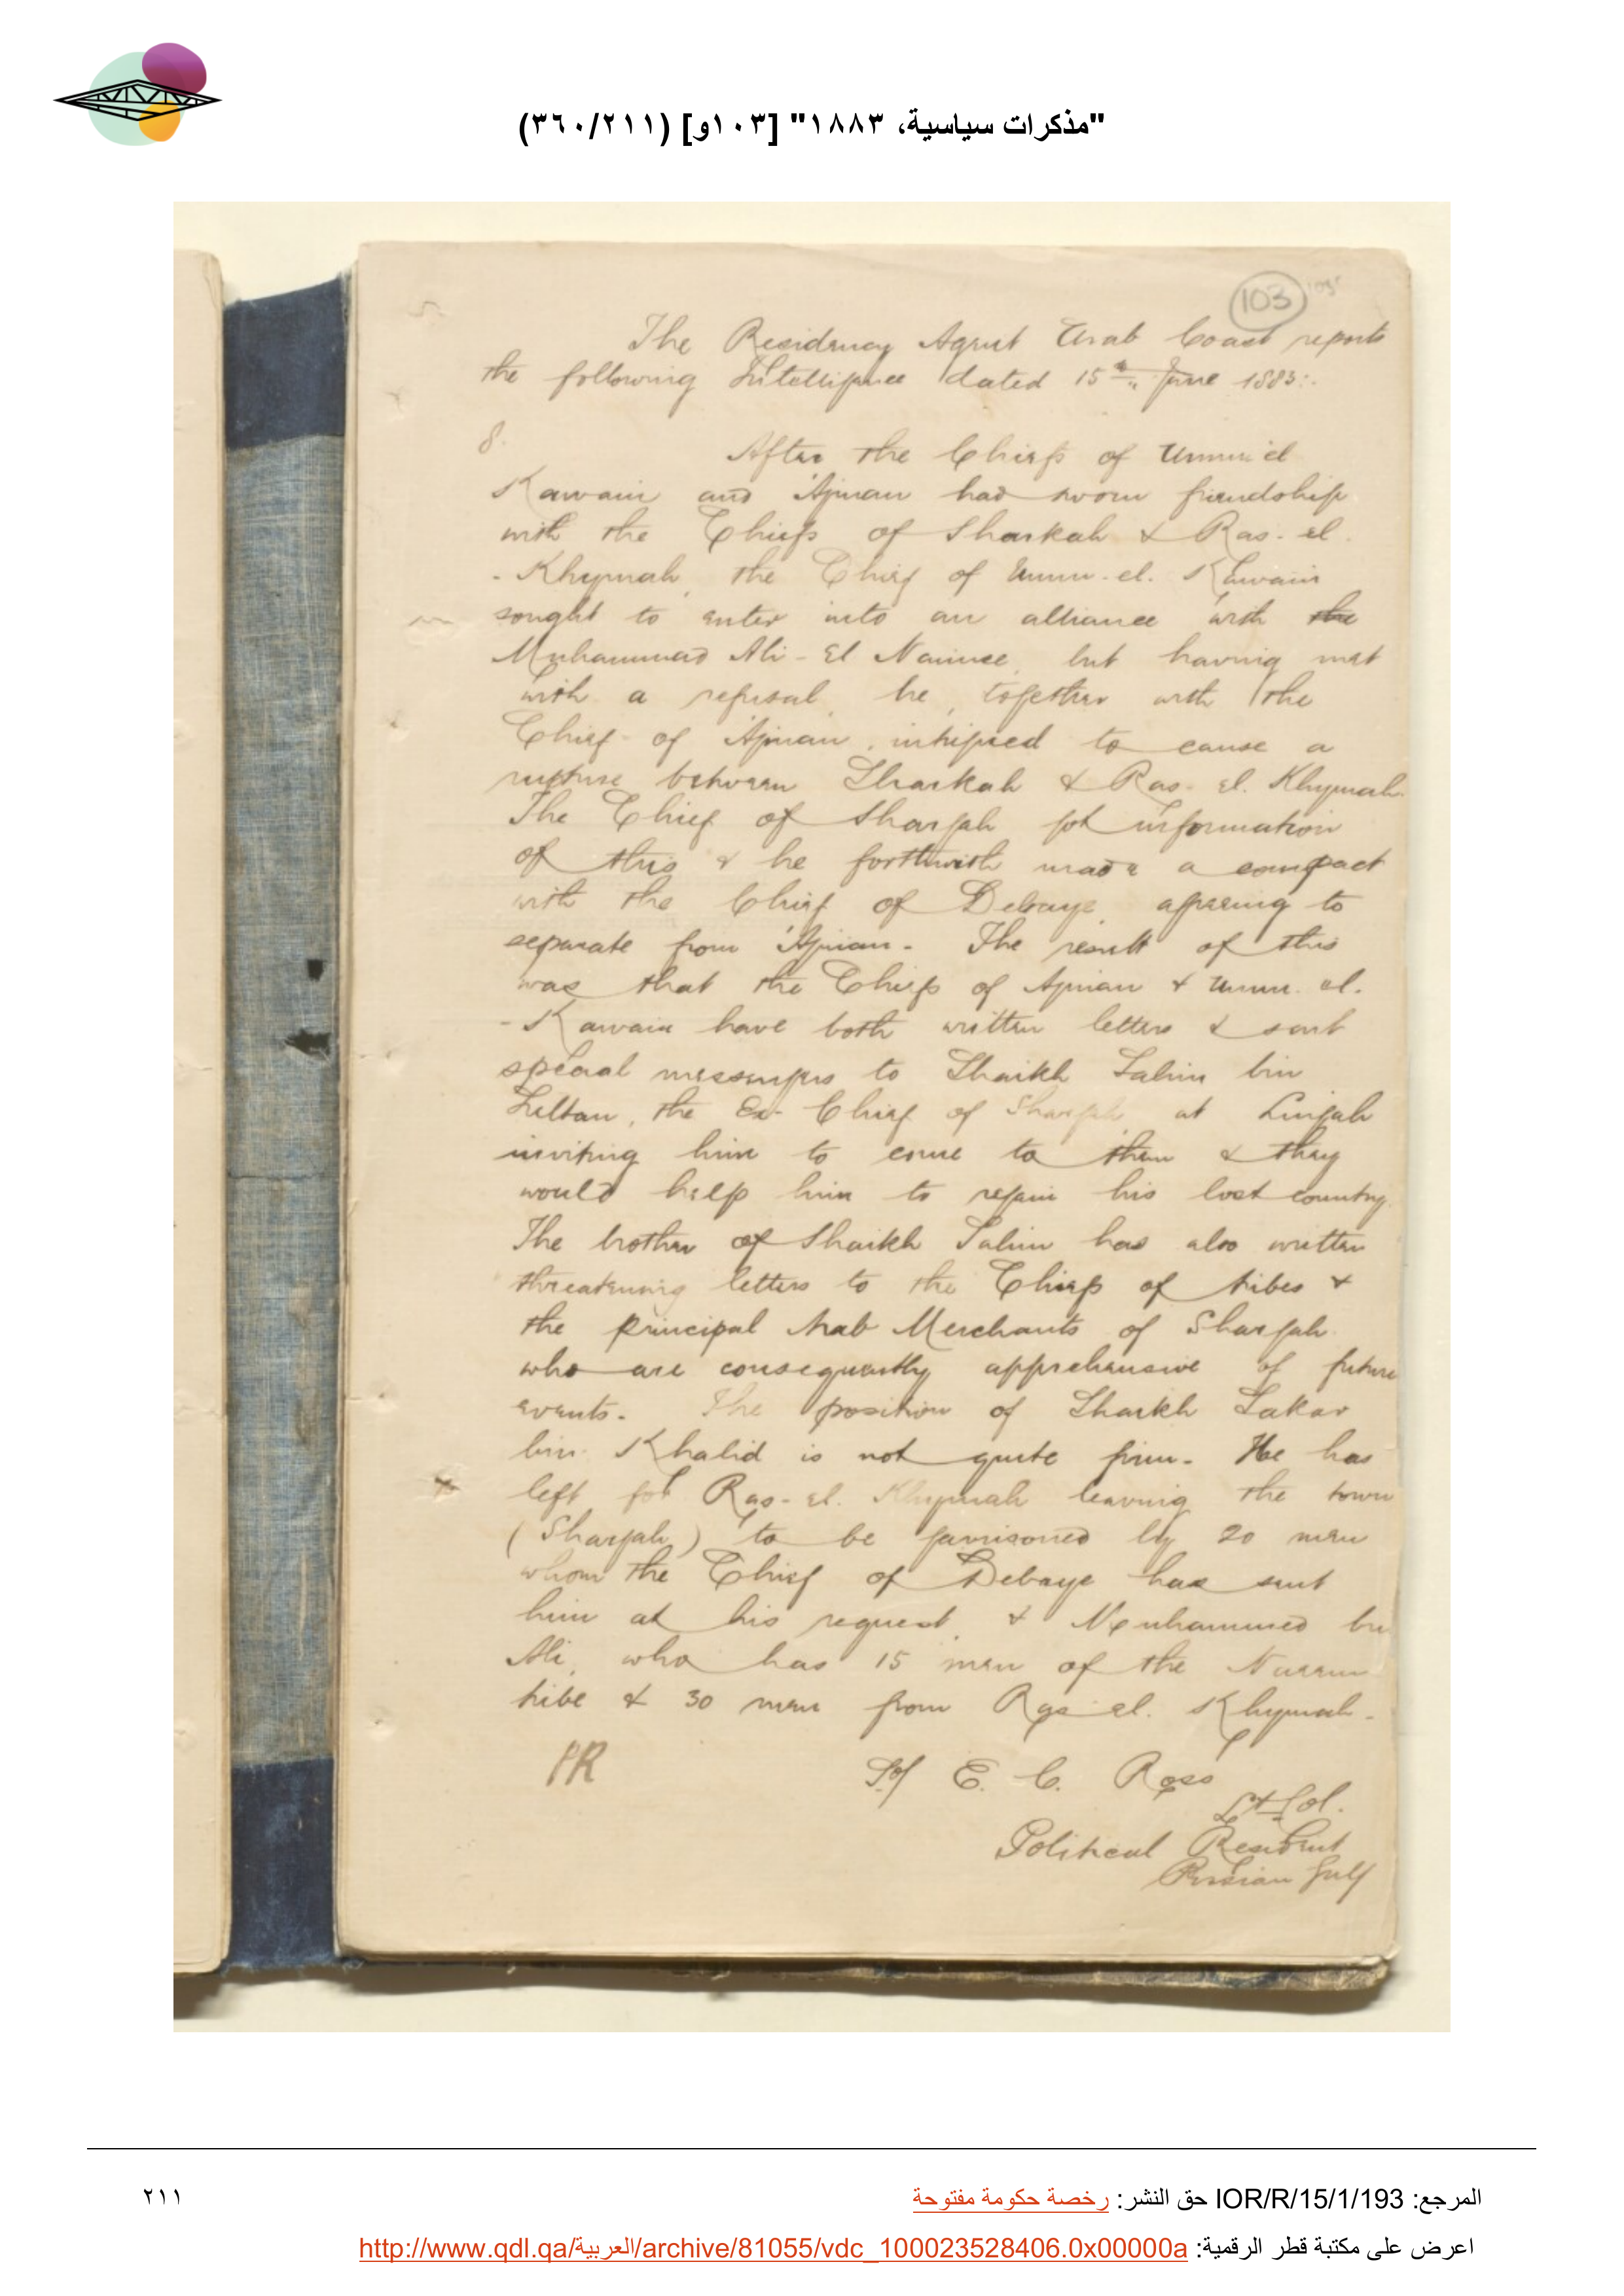 "مذكرات سياسية، ١٨٨٣" [١٠٣و] (٣٦٠/٢١١)
103
The Residency Agent Arab Coast reports
the following Intelligence dated 15th June 1883:.
8.
After the Chiefs of Umm el
Kawain and 'Ajman had sworn friendship
with the Chiefs of Sharkah & Ras-el
-Khymah, the Chief of Umm-el-Kawain
sought to enter into an alliance with the
Muhammad Ali-El Naimee, but having met
with a refusal, he, together with the
Chief of 'Ajman, intrigued to cause a
rupture between Sharkah & Ras-el-Khymah.
The Chief of Sharjah got information
of this & he forthwith made a compact
with the Chief of Debaye, agreeing to
separate from 'Ajman. The result of this
was that the Chiefs of Ajman & Umm-el-
-Kawain have both written letters & sent
special messengers to Shaikh Salim bin
Sultan, the Ex-Chief of Sharjah at Lingah
inviting him to come to them & they
would help him to regain his lost country.
The brother of Shaikh Salim has also written
threatening letters to the Chiefs of tribes &
the principal Arab Merchants of Sharjah
who are consequently apprehensive of future
events. The position of Shaikh Sakar
bin Khalid is not quite firm. He has
left for Ras-el-Khymah leaving the town
(Sharjah) to be garrisoned by 20 men
whom the Chief of Debaye has sent
him at his request, & Muhammed bin
Ali, who has 15 men of the Naeem
tribe & 30 men from Ras el-Khymah.
Sd/ E. C. Ross
Lt Col.
Political Resident
Persian Gulf
المرجع: IOR/R/15/1/193 حق النشر: رخصة حكومة مفتوحة
٢١١
اعرض على مكتبة قطر الرقمية: http://www.qdl.qa/العربية/archive/81055/vdc_100023528406.0x00000a